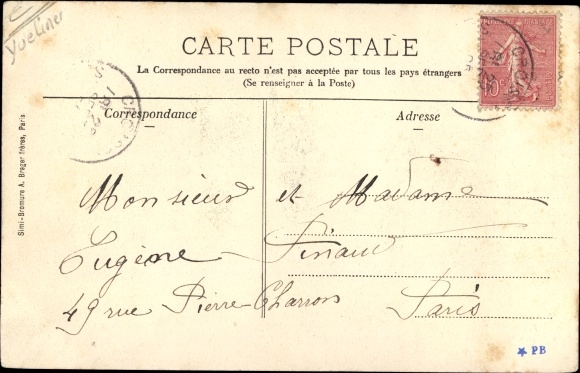 Yvelines
CARTE POSTALE
La Correspondance au recto n'est pas acceptée par tous les pays étrangers
(Se renseigner à la Poste)
Correspondance
Adresse
Simi-Bromure A. Breger frères, Paris
Monsieur et Madame
Eugène Pinaud
49 rue Pierre-Charron Paris
★ PB